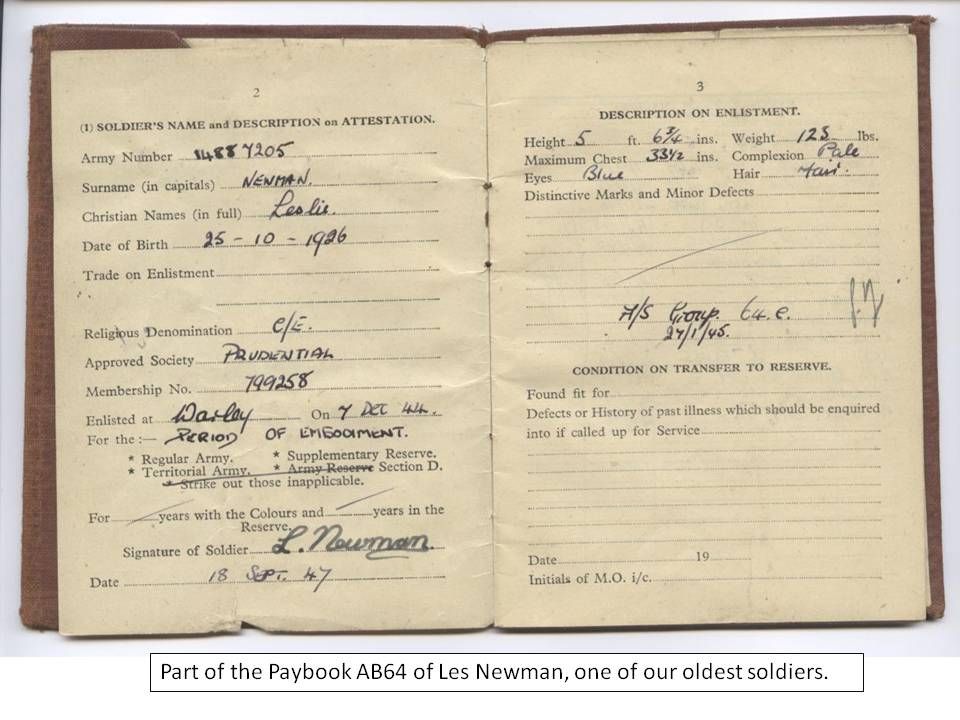 2
(1) SOLDIER'S NAME and DESCRIPTION on ATTESTATION.
Army Number 14887205
Surname (in capitals) NEWMAN.
Christian Names (in full) Leslie.
Date of Birth 25 - 10 - 1926
Trade on Enlistment
Religious Denomination C/E.
Approved Society PRUDENTIAL
Membership No. 799258
Enlisted at Warley On 7 DEC 44.
For the :— PERIOD OF EMBODIMENT.
* Regular Army. * Supplementary Reserve.
* Territorial Army. * Army Reserve Section D.
* Strike out those inapplicable.
For years with the Colours and years in the
Reserve.
Signature of Soldier L. Newman.
Date 18 SEPT. 47
3
DESCRIPTION ON ENLISTMENT.
Height 5 ft. 6 3/4 ins. Weight 123 lbs.
Maximum Chest 33 1/2 ins. Complexion Pale
Eyes Blue Hair Fair.
Distinctive Marks and Minor Defects
A/S Group. 64.C.
27/1/45.
CONDITION ON TRANSFER TO RESERVE.
Found fit for
Defects or History of past illness which should be enquired
into if called up for Service
Date 19
Initials of M.O. i/c.
Part of the Paybook AB64 of Les Newman, one of our oldest soldiers.